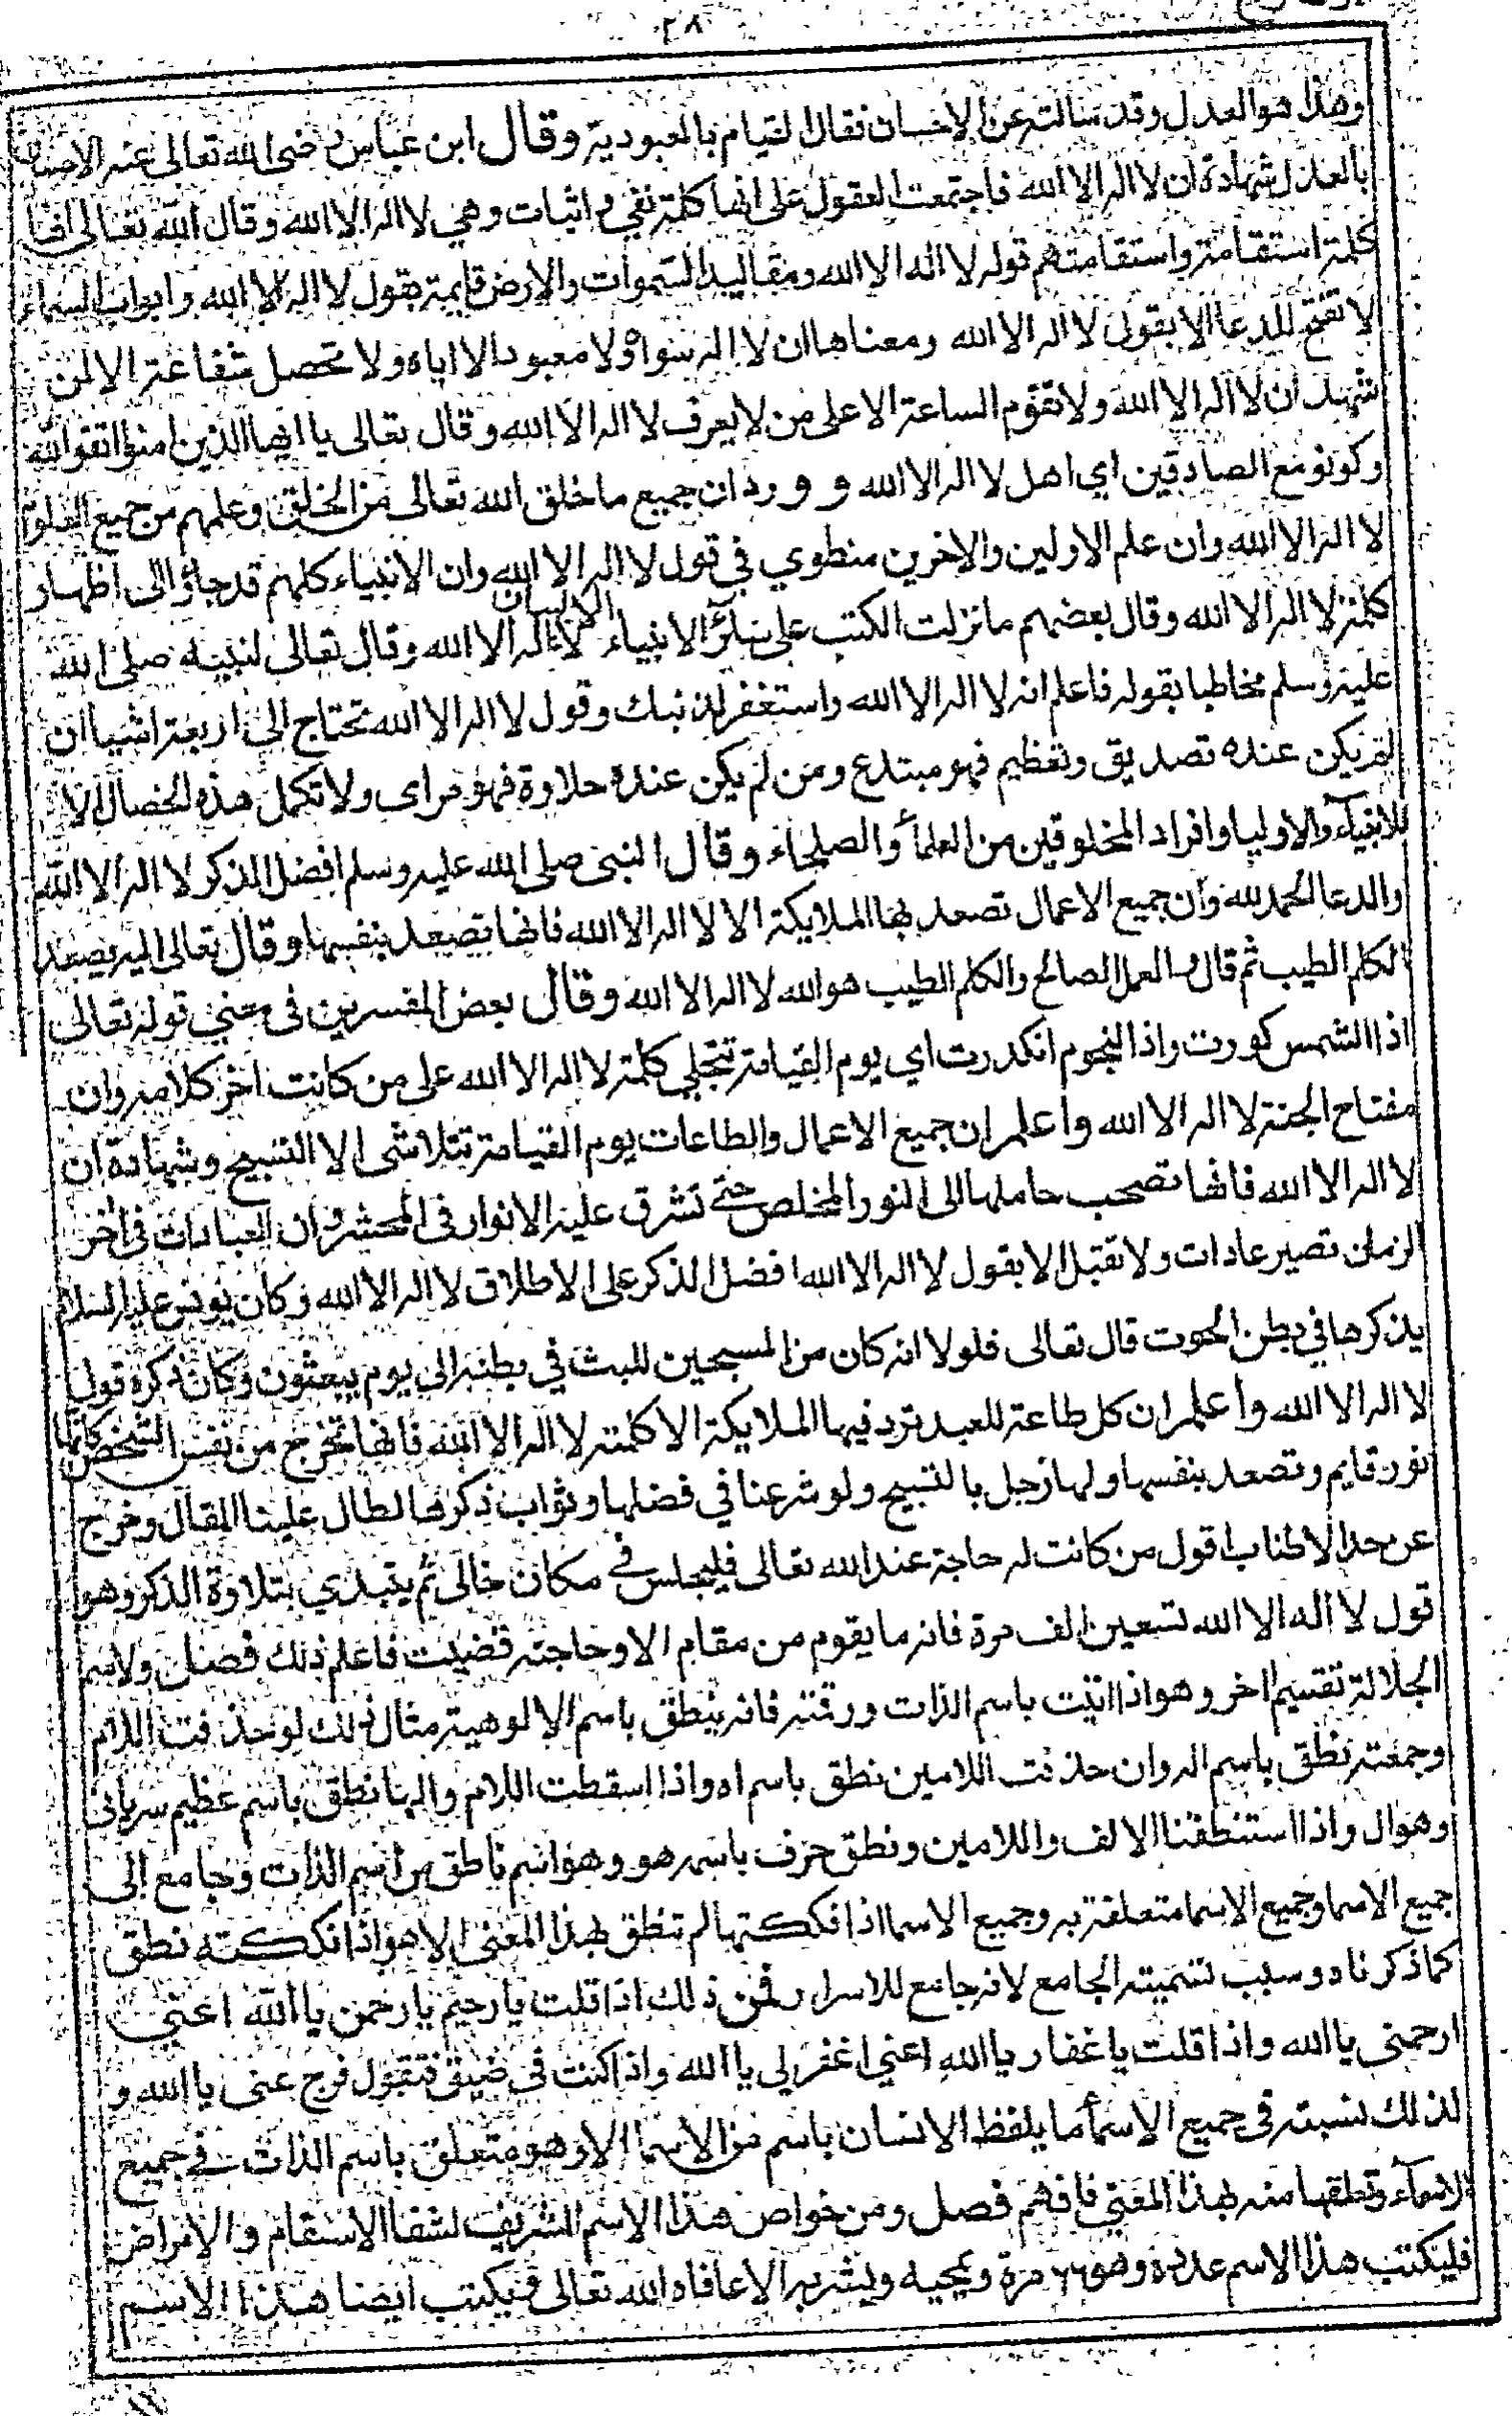 ٢٨
وهذا هو العدل وقد سالته عن الاحسان فقال القيام بالعبودية وقال ابن عباس رضى الله تعالى عنه الاحسان
بالعدل شهادة ان لا اله الا الله فاجتمعت العقول على انها كلمة نفي و اثبات وهي لا اله الا الله وقال الله تعالى
كلمة استقامة واستقامتهم قوله لا اله الا الله ومقاليد السموات والارض قايمة بقول لا اله الا الله وابواب السماء
لا تفتح للدعا الا بقول لا اله الا الله ومعناها ان لا اله سواه ولا معبود الا اياه ولا تحصل شفاعة الا لمن
شهد ان لا اله الا الله ولا تقوم الساعة الا على من لا يعرف لا اله الا الله وقال تعالى يا ايها الذين امنوا اتقوا الله
وكونو مع الصادقين اي اهل لا اله الا الله و ورد ان جميع ما خلق الله تعالى من الخلق وعلمهم من جميع العلوم
لا اله الا الله وان علم الاولين والاخرين منطوي في قول لا اله الا الله وان الانبياء كلهم قد جاؤا الى اظهار
كلمة لا اله الا الله وقال بعضهم ما نزلت الكتب على سائر الانبياء الا لبيان لا اله الا الله وقال تعالى لنبيه صلى الله
عليه وسلم مخاطبا بقوله فاعلم انه لا اله الا الله واستغفر لذنبك وقول لا اله الا الله تحتاج الى اربعة اشيا ان
لم يكن عنده تصديق وتعظيم فهو مبتدع ومن لم يكن عنده حلاوة فهو مراى ولا تكمل هذه الخصال الا
للانبياء والاوليا وافراد المخلوقين من العلماء والصلحاء وقال النبى صلى الله عليه وسلم افضل الذكر لا اله الا الله
والدعا الحمد لله وان جميع الاعمال تصعد بها الملايكة الا لا اله الا الله فانها تصعد بنفسها وقال تعالى اليه يصعد
الكلم الطيب ثم قال والعمل الصالح والكلم الطيب هو الله لا اله الا الله وقال بعض المفسرين فى معنى قوله تعالى
اذا الشمس كورت واذا النجوم انكدرت اي يوم القيامة تتجلي كلمة لا اله الا الله على من كانت اخر كلامه وان
مفتاح الجنة لا اله الا الله واعلم ان جميع الاعمال والطاعات يوم القيامة تتلاشى الا التسبيح وشهادة ان
لا اله الا الله فانها تصحب حاملها الى النور المخلص حتى تشرق عليه الانوار فى المحشر وان العبادات في اخر
الزمان تصير عادات ولا تقبل الا بقول لا اله الا الله افضل الذكر على الاطلاق لا اله الا الله وكان يونس عليه السلام
يذكرها في بطن الحوت قال تعالى فلولا انه كان من المسبحين للبث في بطنه الي يوم يبعثون وكان ذكره قول
لا اله الا الله واعلم ان كل طاعة للعبد ترد فيها الملايكة الا كلمة لا اله الا الله فانها تخرج من نفس الشخص كانها
نور قايم وتصعد بنفسها ولها زجل بالتسبيح ولو شرعنا في فضلها وثواب ذكرها لطال علينا المقال وخرج
عن حد الاطناب اقول من كانت له حاجة عند الله تعالى فليجلس في مكان خالى ثم يبتدي بتلاوة الذكر وهو
قول لا اله الا الله تسعين الف مرة فانه ما يقوم من مقام الا وحاجته قضيت فاعلم ذلك فصل ولاسم
الجلالة تقسيم اخر وهو اذا اتيت باسم الذات ورقته فانه ينطق باسم الالوهية مثال ذلك لو حذفت اللام
وجمعته نطق باسم اله وان حذفت اللامين نطق باسم اه واذا اسقطت اللام والها نطق باسم عظيم سرياني
وهو ال واذا استنطقنا الالف واللامين ونطق حرف باسمه هو وهو اسم ناطق من اسم الذات وجامع الى
جميع الاسما وجميع الاسما متعلقة به وجميع الاسما اذا فككتها لم تنطق بهذا المعنى الا هو اذا فككته نطق
كما ذكرناه وسبب تسميته الجامع لانه جامع للاسرار فمن ذلك اذا قلت يا رحيم يا رحمن يا الله اعني
ارحمنى يا الله واذا قلت يا غفار يا الله اعني اغفر لي يا الله واذا كنت فى ضيق فتقول فرج عنى يا الله و
لذلك نسبته في جميع الاسماء ما يلفظ الانسان باسم من الاسما الا وهو متعلق باسم الذات في جميع
الاسماء وتعلقها منه بهذا المعنى فافهم فصل ومن خواص هذا الاسم الشريف لشفا الاسقام والامراض
فليكتب هذا الاسم عدده وهو ٦٦ مرة ويمحيه ويشربه الا عافاه الله تعالى ويكتب ايضا هذا الاسم